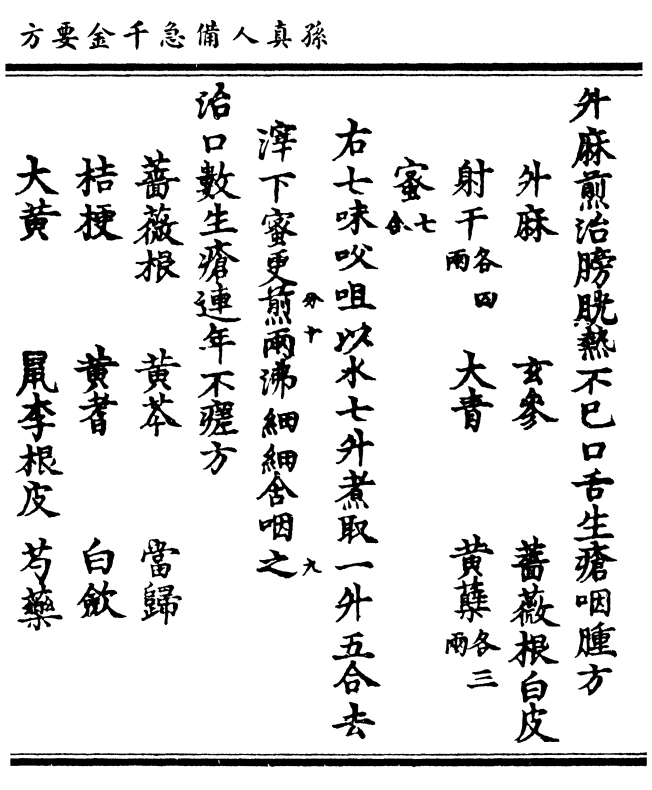 孫真人備急千金要方
升麻煎治膀胱熱不已口舌生瘡咽腫方
升麻 玄參 薔薇根白皮
射干各四兩 大青 黄蘗各三兩
蜜七合
右七味㕮咀以水七升煮取一升五合去
滓下蜜更煎兩沸細細含咽之
分十 九
治口數生瘡連年不瘥方
薔薇根 黄芩 當歸
桔梗 黄耆 白歛
大黄 鼠李根皮 芍藥